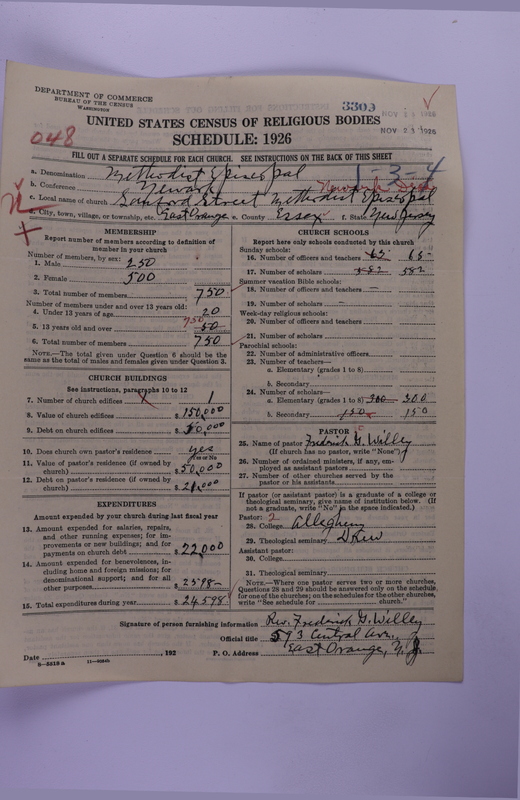 DEPARTMENT OF COMMERCE
BUREAU OF THE CENSUS
WASHINGTON
3303
NOV 23 1926
UNITED STATES CENSUS OF RELIGIOUS BODIES
048
SCHEDULE: 1926
FILL OUT A SEPARATE SCHEDULE FOR EACH CHURCH. SEE INSTRUCTIONS ON THE BACK OF THIS SHEET
1-3-4
a. Denomination Methodist Episcopal
b. Conference Newark
c. Local name of church Sanford Street Methodist Episcopal
d. City, town, village, or township, etc. East Orange e. County Essex f. State New Jersey
MEMBERSHIP
Report number of members according to definition of member in your church
Number of members, by sex:
1. Male 250
2. Female 500
3. Total number of members 750
Number of members under and over 13 years old:
4. Under 13 years of age 20
5. 13 years old and over 750
6. Total number of members 750
NOTE.—The total given under Question 6 should be the same as the total of males and females given under Question 3.
CHURCH BUILDINGS
See instructions, paragraphs 10 to 12
7. Number of church edifices 1
8. Value of church edifices $ 150,000
9. Debt on church edifices $
10. Does church own pastor's residence yes
Yes or No
11. Value of pastor's residence (if owned by church) $
12. Debt on pastor's residence (if owned by church) $
EXPENDITURES
Amount expended by your church during last fiscal year
13. Amount expended for salaries, repairs, and other running expenses; for improvements or new buildings; and for payments on church debt $ 22,000
14. Amount expended for benevolences, including home and foreign missions; for denominational support; and for all other purposes $ 2598-
15. Total expenditures during year $ 24598
CHURCH SCHOOLS
Report here only schools conducted by this church
Sunday schools:
16. Number of officers and teachers 65 65-
17. Number of scholars 582 582
Summer vacation Bible schools:
18. Number of officers and teachers —
19. Number of scholars —
Week-day religious schools:
20. Number of officers and teachers
21. Number of scholars
Parochial schools:
22. Number of administrative officers
23. Number of teachers:
a. Elementary (grades 1 to 8)
b. Secondary
24. Number of scholars:
a. Elementary (grades 1 to 8) 300 300
b. Secondary 150 150
PASTOR
25. Name of pastor Frederick G. Willey
(If church has no pastor, write "None")
26. Number of ordained ministers, if any, employed as assistant pastors
27. Number of other churches served by the pastor or his assistants
If pastor (or assistant pastor) is a graduate of a college or theological seminary, give name of institution below. (If not a graduate, write "No" in the space indicated.)
Pastor: 2
28. College Allegheny
29. Theological seminary Drew
Assistant pastor:
30. College
31. Theological seminary
NOTE.—Where one pastor serves two or more churches, Questions 28 and 29 should be answered only on the schedule for one of the churches; on the schedules for the other churches, write "See schedule for church."
Signature of person furnishing information Rev. Frederick G. Willey
Official title 593 Central Ave.,
Date , 192 P. O. Address East Orange, N. J.
8-5818a